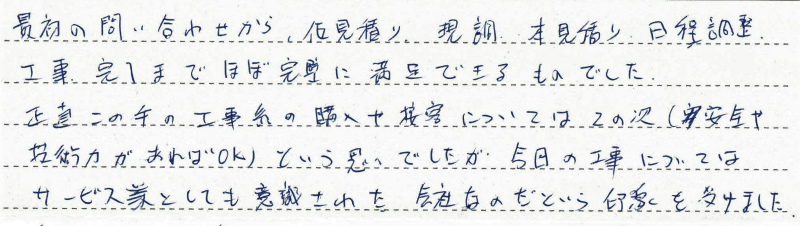 最初の問い合わせから、仮見積り、現調、本見積り、日程調整、
工事、完了までほぼ完璧に満足できるものでした。
正直この手の工事系の購入や接客については2の次(安全や
技術力があればOK)という思いでしたが、今日の工事については
サービス業としても意識された会社なのだという印象を受けました。